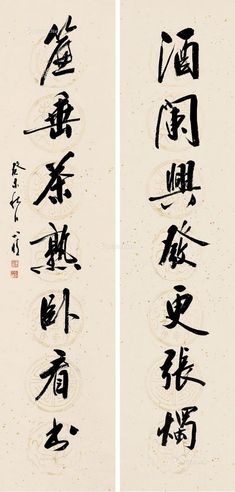 酒阑興發更張燭
簾垂茶熟卧看書
癸未秋月